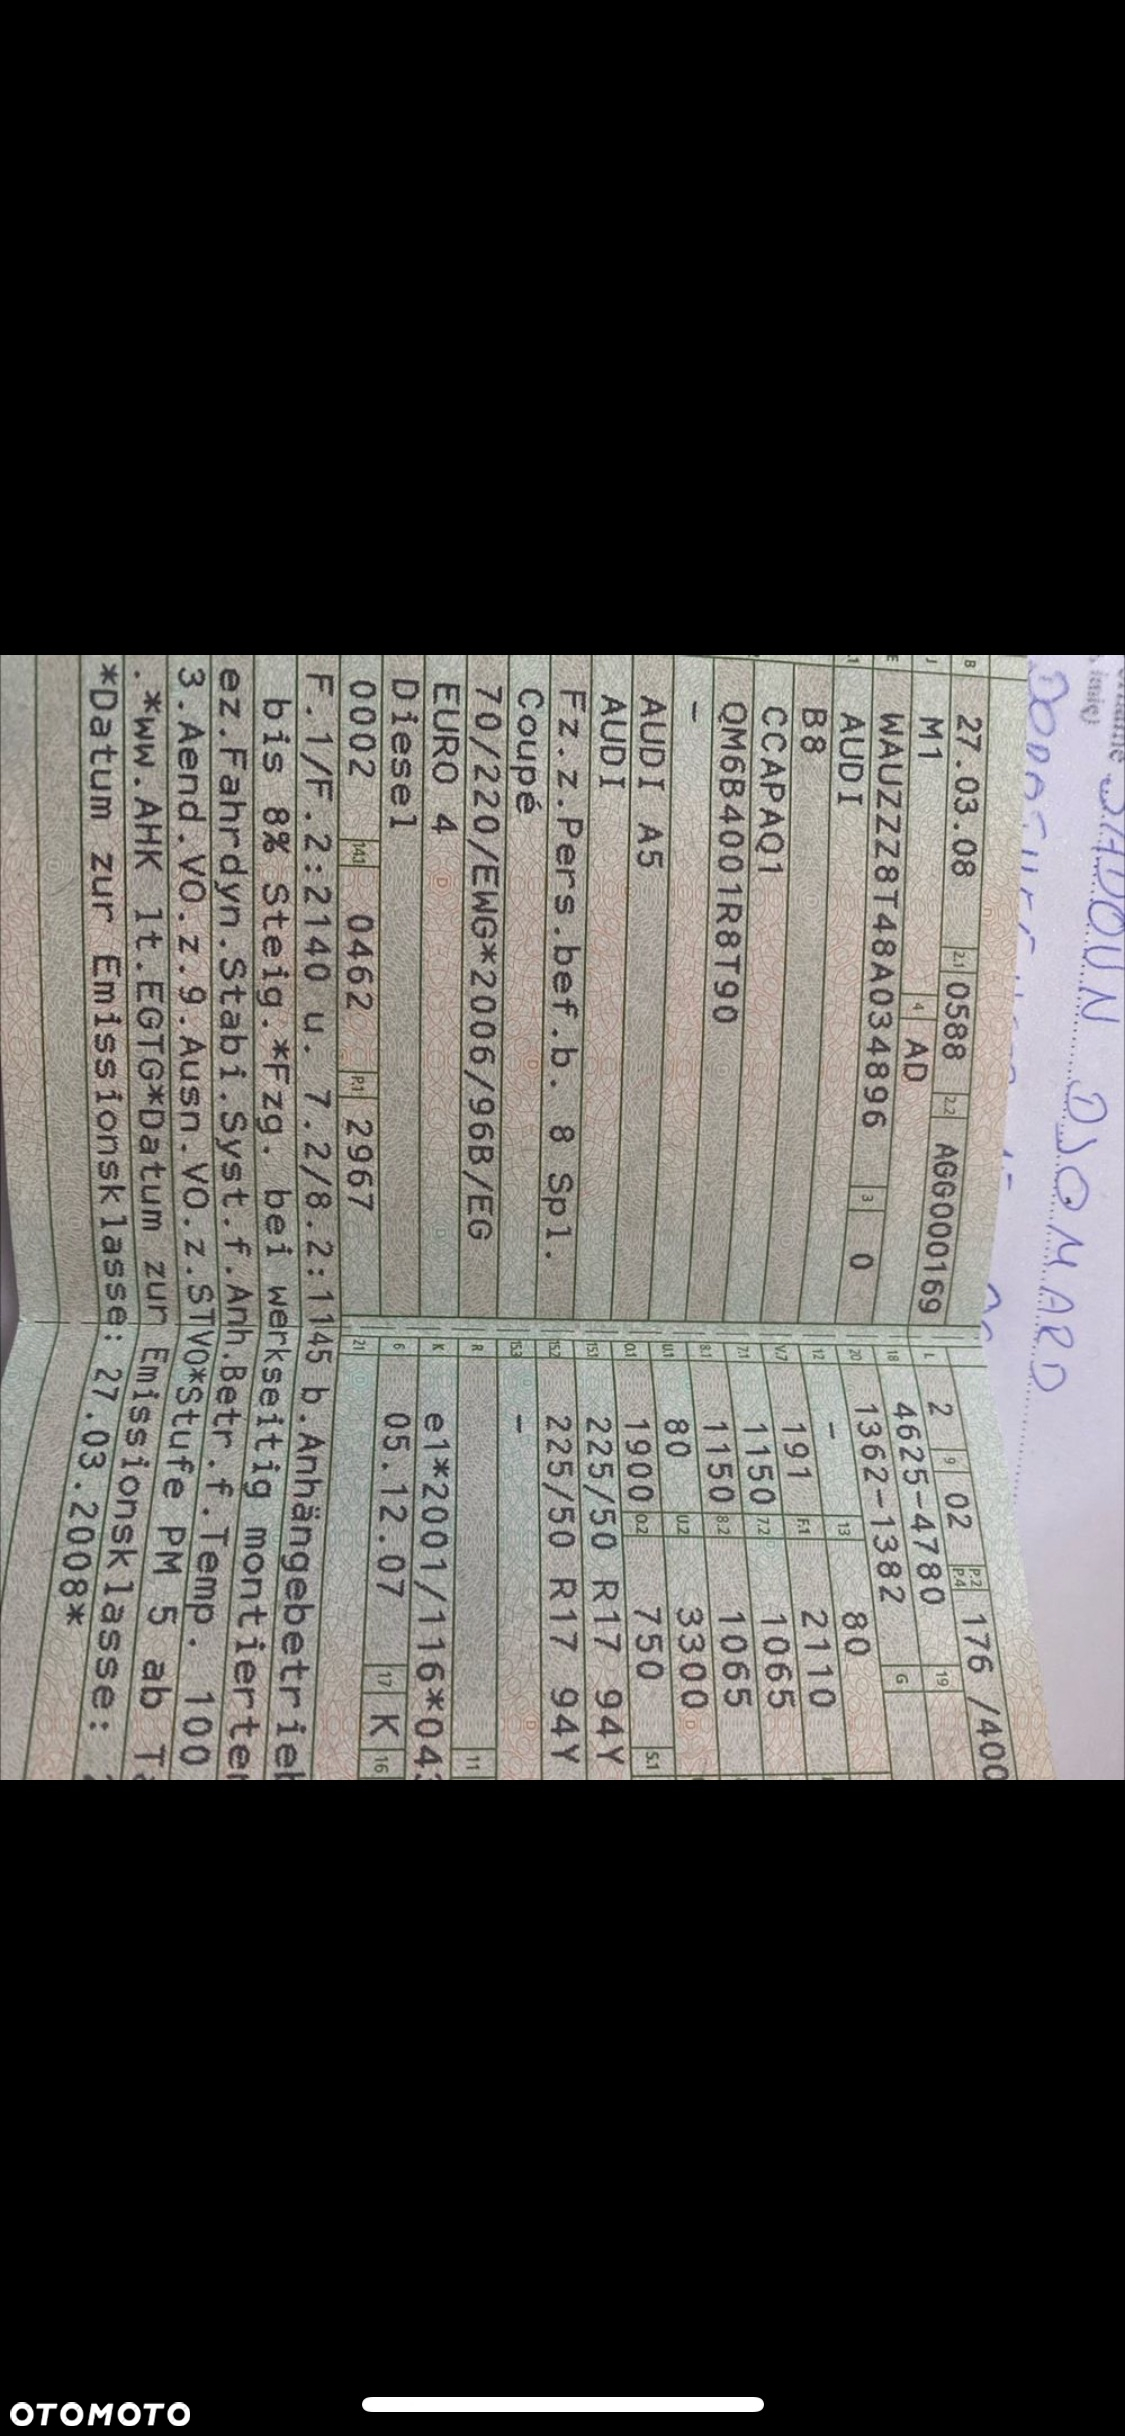 SADOUN DJOMARD
B 27.03.08 2.1 0588 2.2 AGG000169
J M1 4 AD
E WAUZZZ8T48A034896 3 0
AUDI
B8
CCAPAQ1
QM6B4001R8T90
-
AUDI A5
AUDI
Fz.z.Pers.bef.b. 8 Spl.
Coupé
70/220/EWG*2006/96B/EG
EURO 4
Diesel
0002 14.1 0462 P.1 2967
L 2 9 02 P.2 P.4 176 /400
18 4625-4780 19
20 1362-1382 G
12 - 13 80
V.7 191 F.1 2110
7.1 1150 7.2 1065
8.1 1150 8.2 1065
U.1 80 U.2 3300
O.1 1900 O.2 750 S.1
15.1 225/50 R17 94Y
15.2 225/50 R17 94Y
15.3 -
R 11
K e1*2001/116*04
6 05.12.07 17 K 16
21
F.1/F.2:2140 u. 7.2/8.2:1145 b.Anhängebetrieb
bis 8% Steig.*Fzg. bei werkseitig montierter
ez.Fahrdyn.Stabi.Syst.f.Anh.Betr.f.Temp. 100
3.Aend.VO.z.9.Ausn.VO.z.STVO*Stufe PM 5 ab
.*ww.AHK lt.EGTG*Datum zur Emissionsklasse:
*Datum zur Emissionsklasse: 27.03.2008*
OTOMOTO